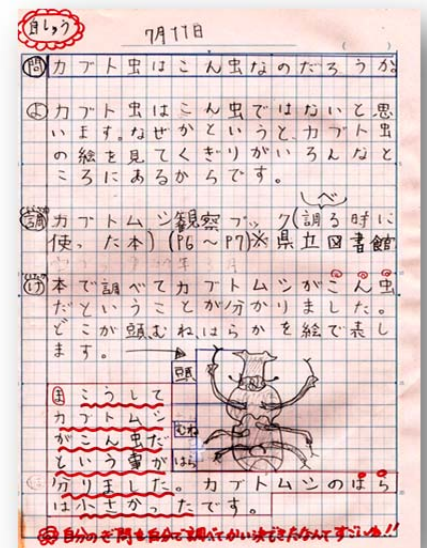 自しゅう
7月11日
問 カブト虫はこん虫なのだろうか。
よ カブト虫はこん虫ではないと思
います。なぜかというと、カブト虫
の絵を見てくぎりがいろんなと
ころにあるからです。
調 カブトムシ観察ブック(調べる時に
使った本)(P6〜P7)※県立図書館
け 本で調べてカブトムシがこん虫
だということが分かりました。
どこが頭、むね、はらかを絵で表し
ます。
頭
むね
はら
ま こうして
カブトムシ
がこん虫だ
という事が
分りました。カブトムシのはら
は小さかったです。
自分のぎ問を自分で調べてかい決できたなんてすごいね!!